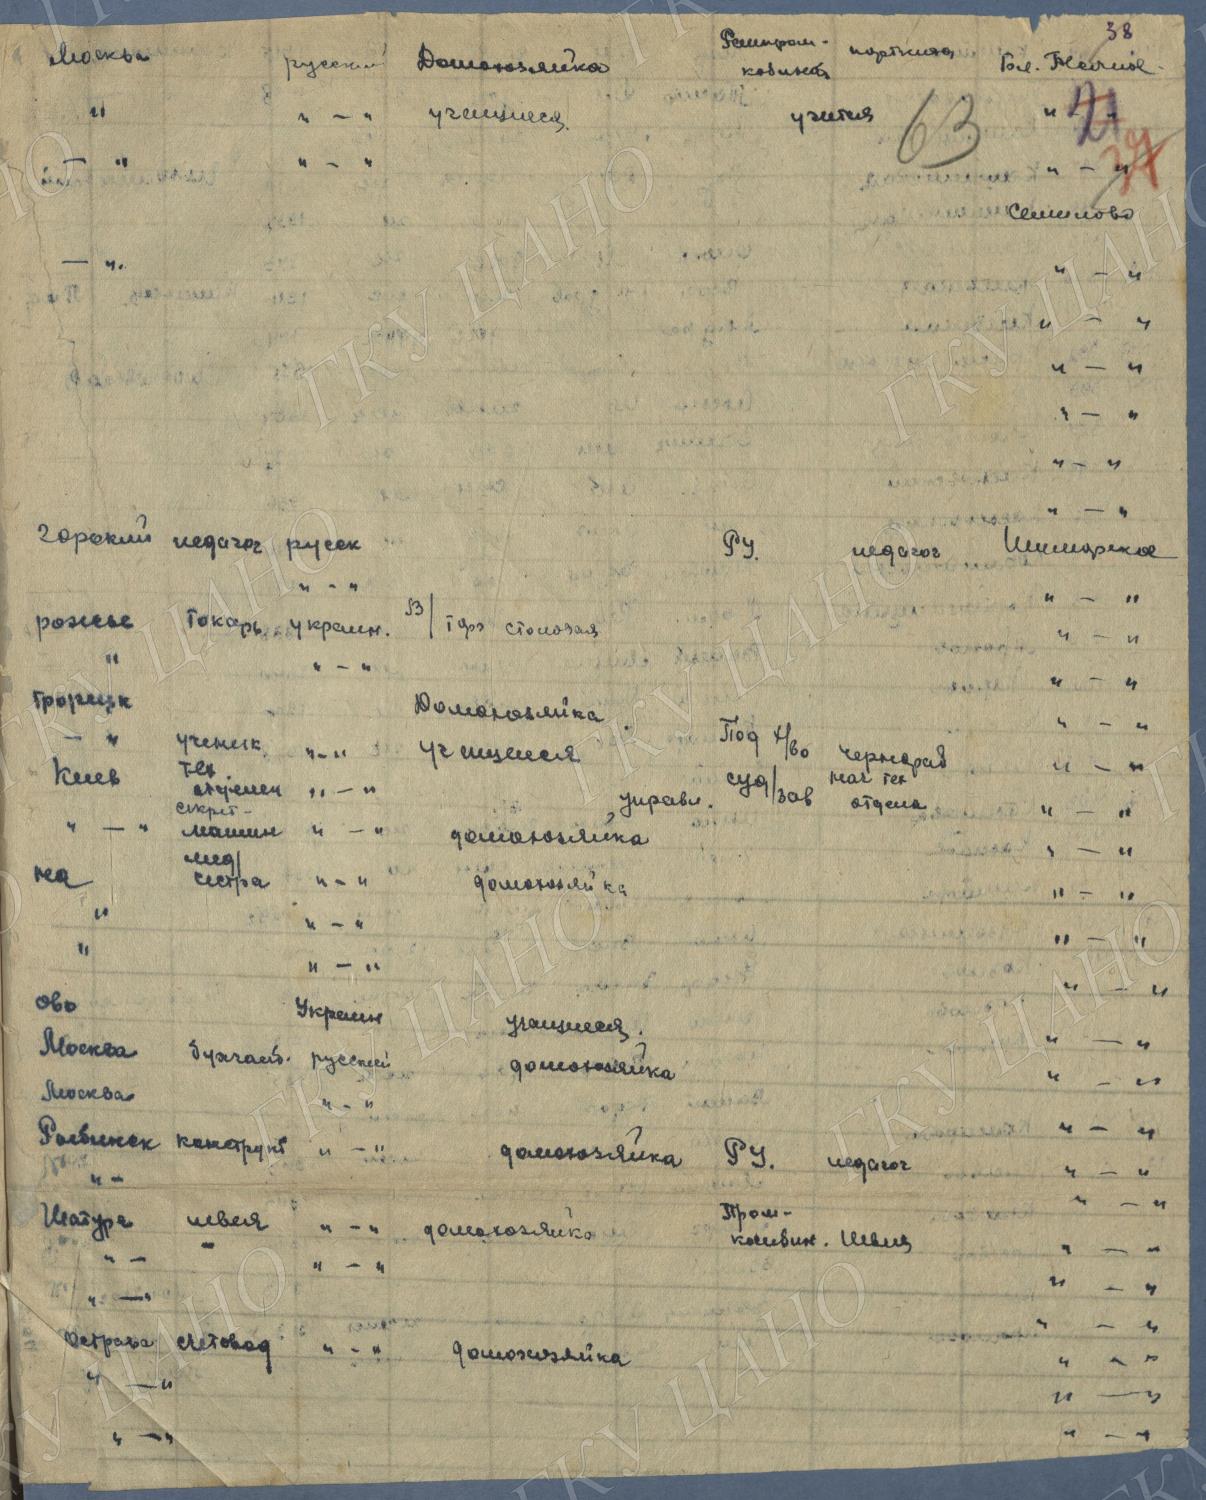 38
Москва русский Домохозяйка Разнпром- портниха
кабинат Бл. Песочное
" " — " учащиеся учится 63 " 21 "
— " " — " " — " 37
Семилово
— ". " — "
" — "
" — "
" — "
" — "
" — "
горский педагог русск РУ. педагог Шиморское
" — " " — "
рожье токарь украин. ВЗ/ торг столовая " — "
" " — " " — "
Троицк Домохозяйка " — "
— " ученик " — " учащиеся Под х/во чернораб " — "
Киев тех " — " управл. суд/зав нач тех отдела " — "
секрет-
" — " машин " — " домохозяйка " — "
мед/
на сестра " — " домохозяйка " — "
" " — " " — "
" " — " " — "
ово Украин учащиеся. " — "
Москва бухгалт. русский домохозяйка " — "
Москва " — " " — "
Рыбинск конструкт " — " домохозяйка РУ. педагог " — "
" — " — "
Шатура швея " — " домохозяйка Пром-
комбин. Швец " — "
" — " — " " — "
" — " " — "
счетовод " — " домохозяйка " — "
" — " " — "
" — " " — "
ГКУ ЦАНО